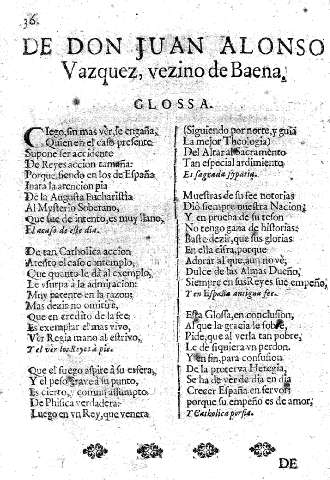 36.
DE DON JUAN ALONSO
Vazquez, vezino de Baena,
GLOSSA.
Ciego, sin mas vèr, se engaña,
Quien en el caso presente
Supone ser accidente
De Reyes accion tamaña:
Porque, siendo en los de España
Inata la atencion pia
De la Augusta Eucharistia
Al Mysterio Soberano,
Que fue de intento, es muy llano,
El acaso de este dia.
De tan Catholica accion
Atento el caso contemplo,
Que quanto le dà al exemplo,
Le vsurpa à la admiracion:
Muy patente en la razon;
Mas dezir no omitirè,
Que en credito de la fee
Es exemplar el mas vivo,
Ver Regia mano al estrivo,
Y el ver los Reyes à pie.
Que el fuego aspire à su esfera,
Y el peso grave à su punto,
Es cierto, y comun assumpto
De Phisica verdadera:
Luego en vn Rey, que venera
(Siguiendo por norte, y guia
La mejor Theologia)
Del Altar al Sacramento
Tan especial ardimiento,
Es sagrada sypatia.
Muestras de su fee notorias
Diò siempre nuestra Nacion;
Y en prueba de su teson
No tengo gana de historias:
Baste dezir, que sus glorias
En ella cifra, porque
Adorar al que, aun no vè;
Dulce de las Almas Dueño,
Siempre en sus Reyes fue empeño,
Y en España antigua fee.
Esta Glossa, en conclusion,
Al que la gracia le sobre,
Pide, que al verla tan pobre,
Le de siquiera vn perdon.
Y en fin, para confusion
De la proterva Heregia,
Se ha de vèr de dia en dia
Crecer España en fervor;
porque su empeño es de amor;
Y Catholica porfia.
DE